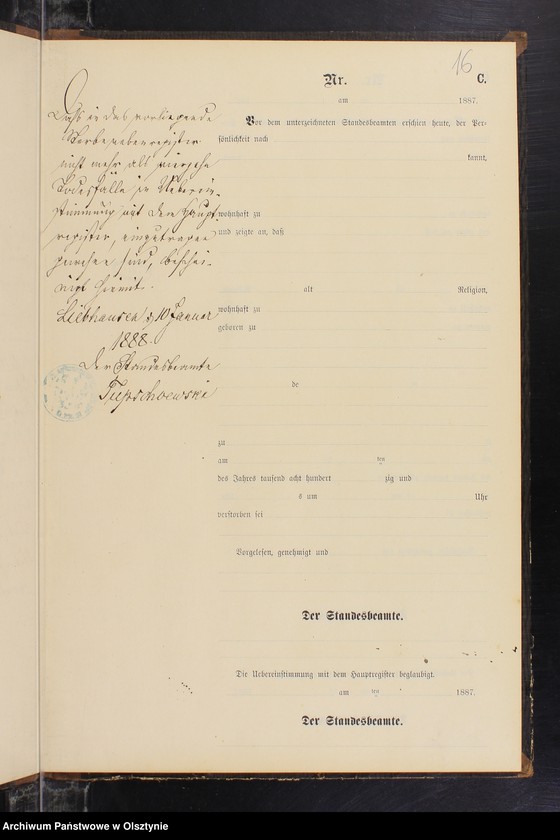 16
Nr. C.
am 1887.
Vor dem unterzeichneten Standesbeamten erschien heute, der Per-
sönlichkeit nach
kannt,
wohnhaft zu
und zeigte an, daß
alt Religion,
wohnhaft zu
geboren zu
de
zu
am ten
des Jahres tausend acht hundert zig und
s um Uhr
verstorben sei
Vorgelesen, genehmigt und
Der Standesbeamte.
Die Uebereinstimmung mit dem Hauptregister beglaubigt.
am ten 1887.
Der Standesbeamte.
Daß in das vorliegende
Sterbenebenregister
nicht mehr als vierzehn
Todesfälle in Ueberein-
stimmung mit dem Haupt-
register, eingetragen
gewesen sind, beschei-
nigt hiermit.
Liebhausen, 10 Januar
1888.
Der Standesbeamte
Archiwum Państwowe w Olsztynie